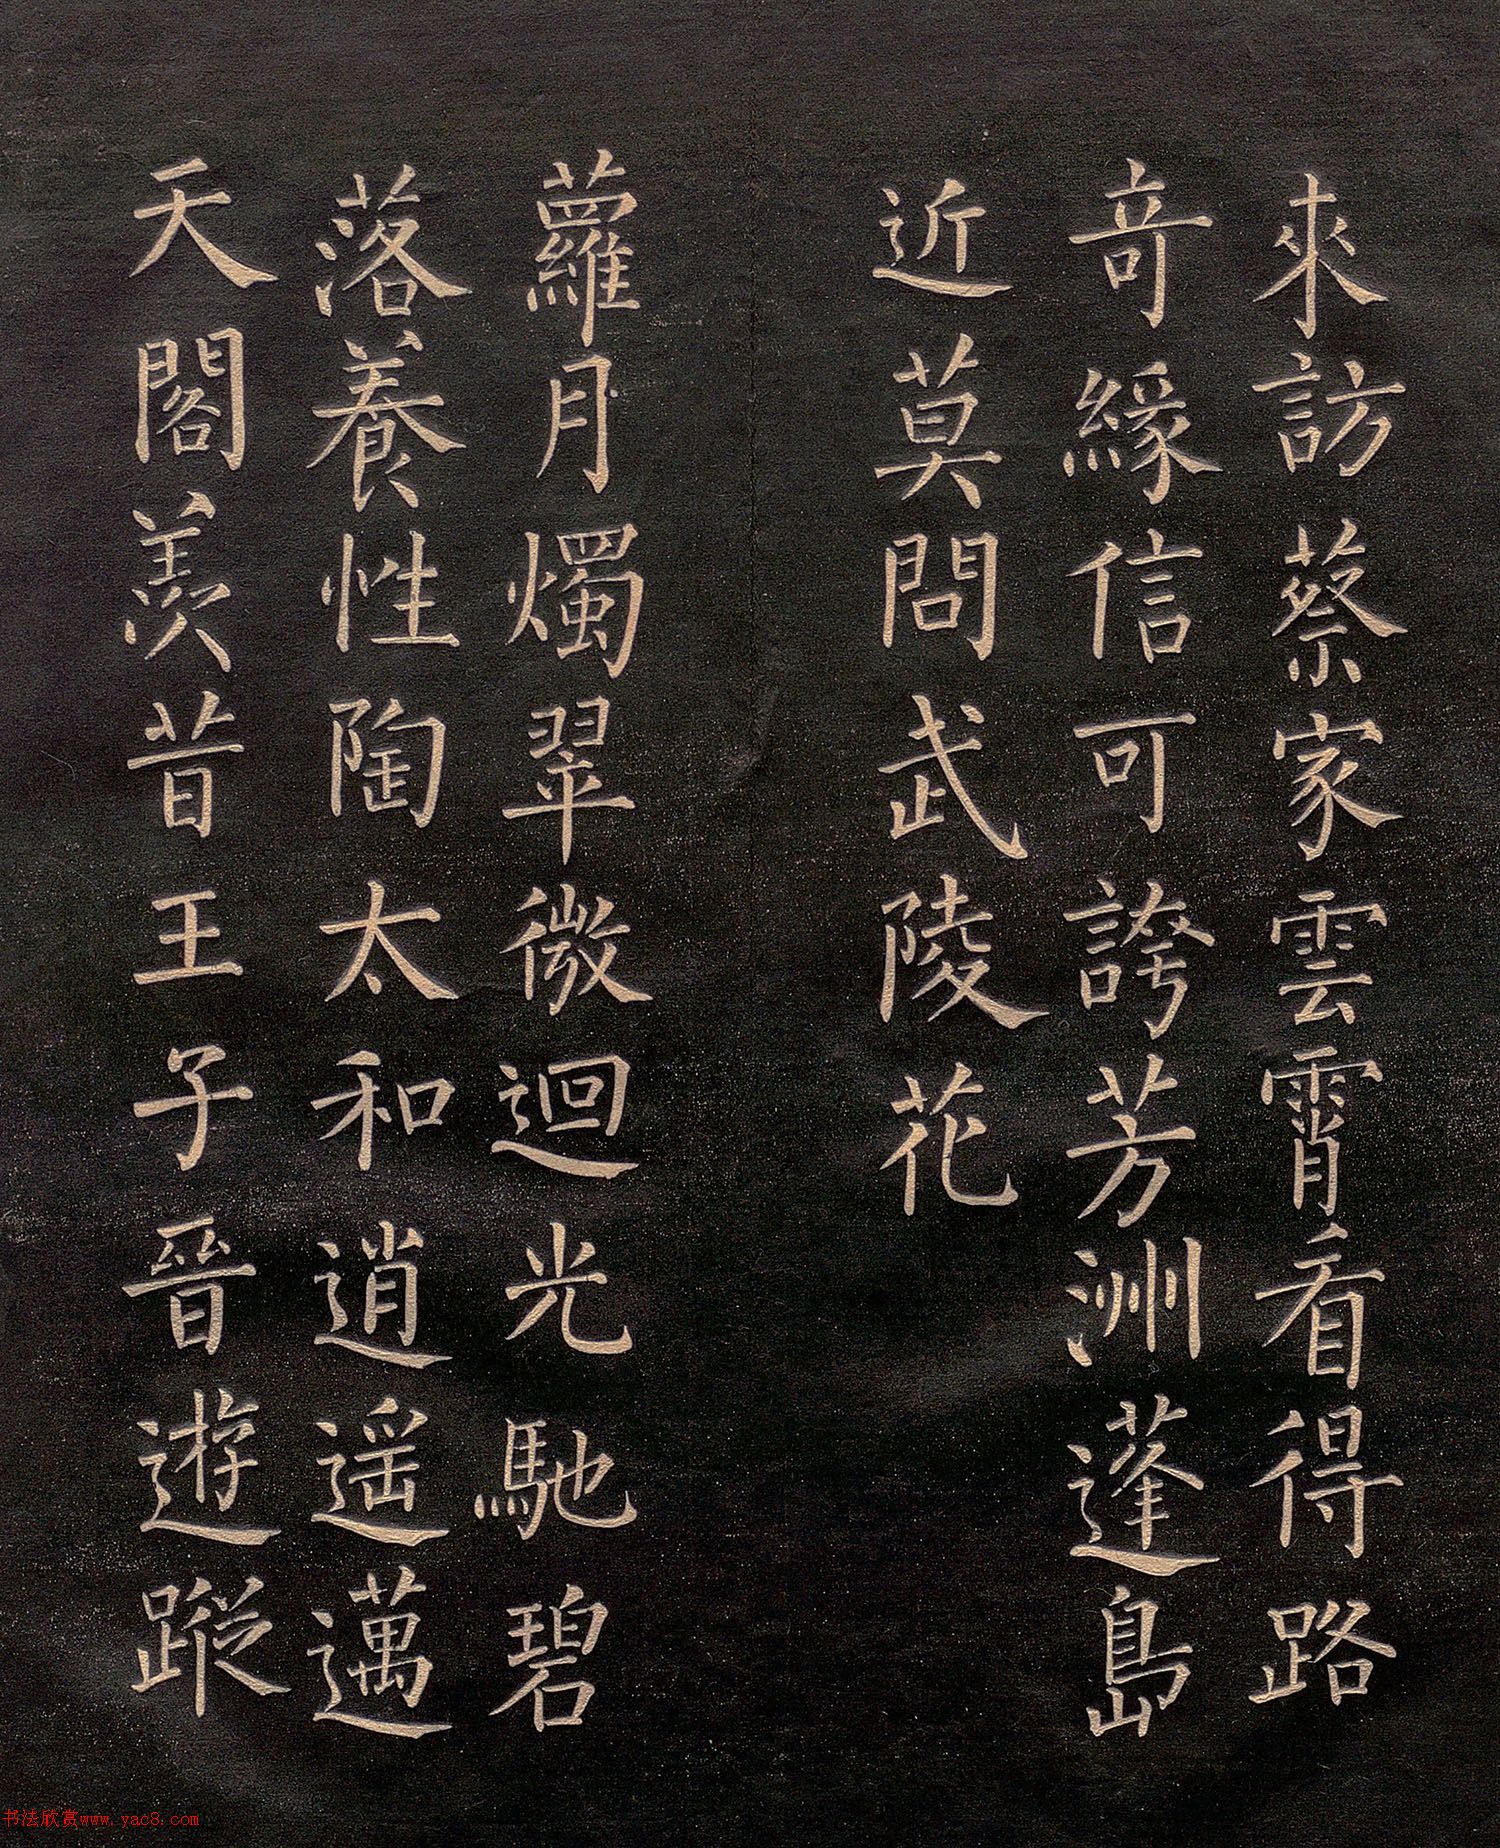 來訪蔡家雲霄看得路
奇緣信可誇芳洲蓬島
近莫問武陵花
蘿月燭翠微迴光馳碧
落養性陶太和逍遥邁
天閣羨昔王子晉遊蹤
书法欣赏www.yac8.com